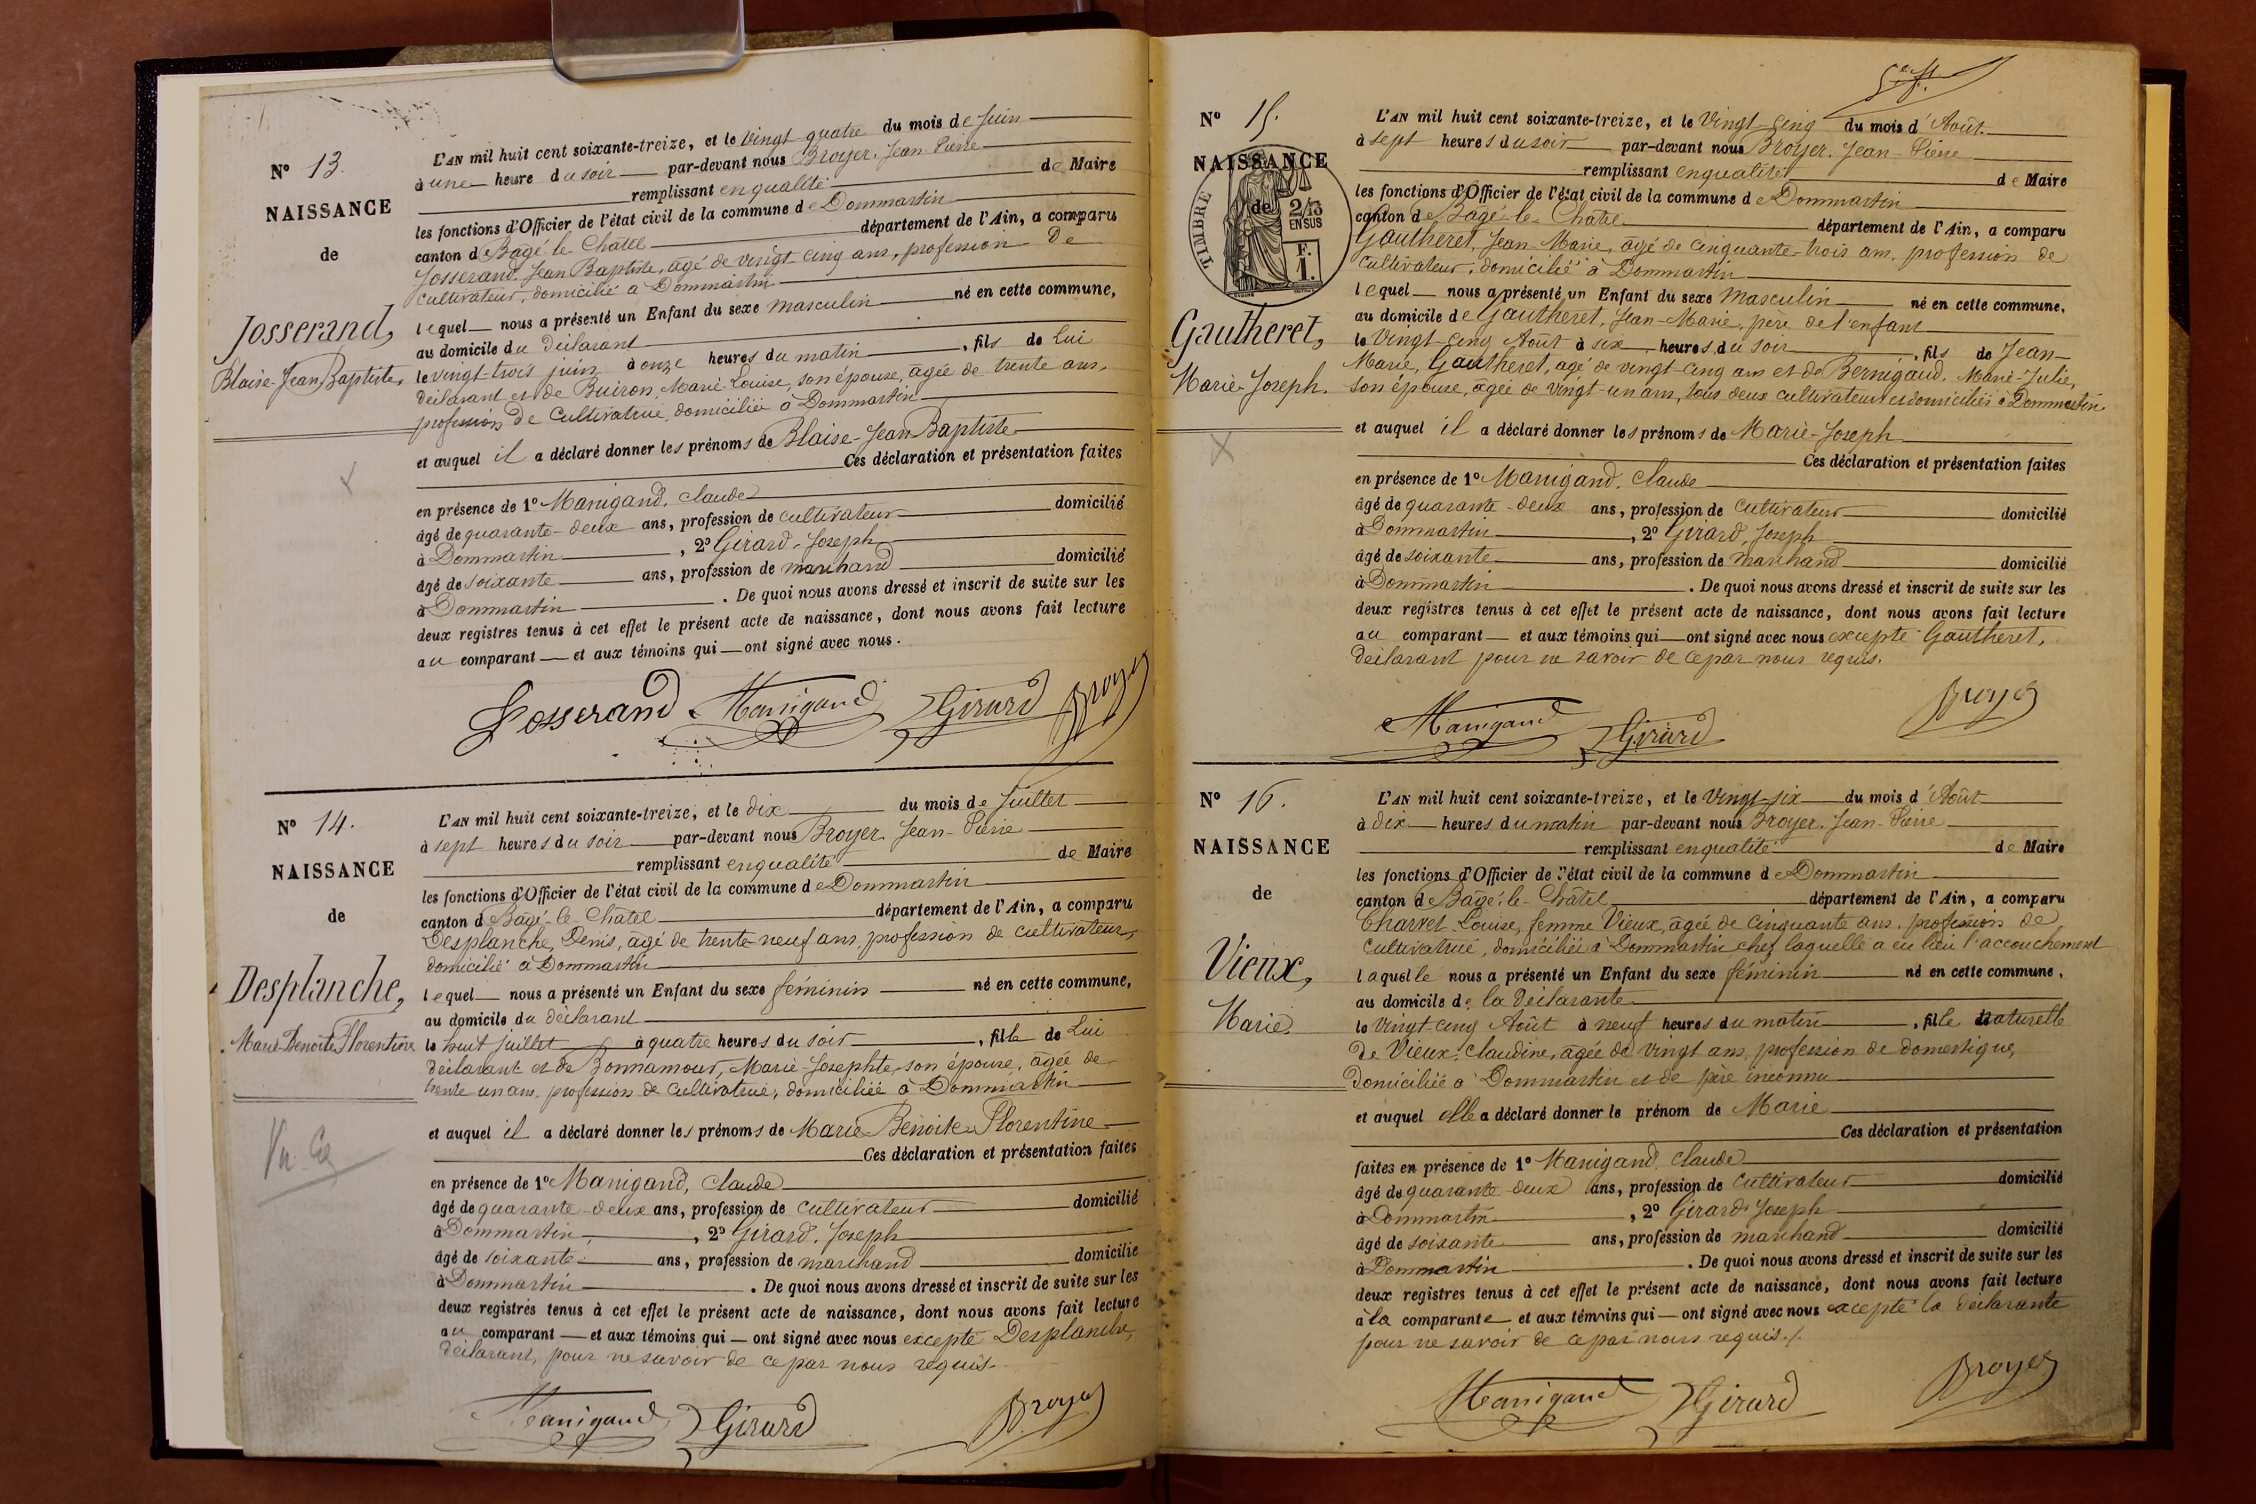 Nº 13.
NAISSANCE
de
Josserand,
Blaise-Jean Baptiste.
L'AN mil huit cent soixante-treize, et le Vingt quatre du mois de Juin
à une heure du soir par-devant nous Broyer, Jean-Pierre
remplissant en qualité de Maire
les fonctions d'Officier de l'état civil de la commune de Dommartin
canton de Bagé le Châtel département de l'Ain, a comparu
Josserand, Jean Baptiste, âgé de vingt cinq ans, profession de
cultivateur, domicilié à Dommartin
lequel nous a présenté un Enfant du sexe masculin né en cette commune,
au domicile du déclarant
le vingt-trois juin à onze heures du matin, fils de lui
déclarant et de Buiron, Marie Louise, son épouse, âgée de trente ans,
profession de cultivatrice, domiciliée à Dommartin
et auquel il a déclaré donner les prénoms de Blaise-Jean Baptiste
Ces déclaration et présentation faites
en présence de 1º Manigand, Claude
âgé de quarante-deux ans, profession de cultivateur domicilié
à Dommartin, 2º Girard, Joseph
âgé de soixante ans, profession de marchand domicilié
à Dommartin. De quoi nous avons dressé et inscrit de suite sur les
deux registres tenus à cet effet le présent acte de naissance, dont nous avons fait lecture
au comparant et aux témoins qui ont signé avec nous.
Josserand Manigand Girard Broyer
Nº 14.
NAISSANCE
de
Desplanche,
Marie Benoîte Florentine
L'AN mil huit cent soixante-treize, et le dix du mois de Juillet
à sept heures du soir par-devant nous Broyer, Jean-Pierre
remplissant en qualité de Maire
les fonctions d'Officier de l'état civil de la commune de Dommartin
canton de Bagé-le-Châtel département de l'Ain, a comparu
Desplanche, Denis, âgé de trente-neuf ans, profession de cultivateur,
domicilié à Dommartin
lequel nous a présenté un Enfant du sexe féminin né en cette commune,
au domicile du déclarant
le huit juillet à quatre heures du soir, fille de lui
déclarant et de Bonnamour, Marie-Josephte, son épouse, âgée de
trente un ans, profession de cultivatrice, domiciliée à Dommartin
et auquel il a déclaré donner les prénoms de Marie Benoite Florentine
Ces déclaration et présentation faites
en présence de 1º Manigand, Claude
âgé de quarante-deux ans, profession de cultivateur domicilié
à Dommartin, 2º Girard, Joseph
âgé de soixante ans, profession de marchand domicilié
à Dommartin. De quoi nous avons dressé et inscrit de suite sur les
deux registres tenus à cet effet le présent acte de naissance, dont nous avons fait lecture
au comparant et aux témoins qui ont signé avec nous excepté Desplanche,
déclarant, pour ne savoir de ce par nous requis.
Manigand Girard Broyer
Nº 15.
NAISSANCE
de
TIMBRE
2/10
EN SUS
F.
1.
Gautheret,
Marie-Joseph.
L'AN mil huit cent soixante-treize, et le Vingt-cinq du mois d'Août
à sept heures du soir par-devant nous Broyer, Jean-Pierre
remplissant en qualité de Maire
les fonctions d'Officier de l'état civil de la commune de Dommartin
canton de Bagé-le-Châtel département de l'Ain, a comparu
Gautheret, Jean-Marie, âgé de cinquante-trois ans, profession de
cultivateur, domicilié à Dommartin
lequel nous a présenté un Enfant du sexe masculin né en cette commune,
au domicile de Gautheret, Jean-Marie, père de l'enfant
le Vingt-cinq Août à six heures du soir, fils de Jean-
Marie, Gautheret, âgé de vingt-cinq ans et de Bernigaud, Marie-Julie,
son épouse, âgée de vingt-un ans, tous deux cultivateurs et domiciliés à Dommartin
et auquel il a déclaré donner les prénoms de Marie-Joseph
Ces déclaration et présentation faites
en présence de 1º Manigand, Claude
âgé de quarante-deux ans, profession de cultivateur domicilié
à Dommartin, 2º Girard, Joseph
âgé de soixante ans, profession de marchand domicilié
à Dommartin. De quoi nous avons dressé et inscrit de suite sur les
deux registres tenus à cet effet le présent acte de naissance, dont nous avons fait lecture
au comparant et aux témoins qui ont signé avec nous excepté Gautheret,
déclarant pour ne savoir de ce par nous requis.
Manigand Girard Broyer
Nº 16.
NAISSANCE
de
Vieux,
Marie
L'AN mil huit cent soixante-treize, et le Vingt-six du mois d'Août
à dix heures du matin par-devant nous Broyer, Jean-Pierre
remplissant en qualité de Maire
les fonctions d'Officier de l'état civil de la commune de Dommartin
canton de Bagé-le-Châtel département de l'Ain, a comparu
Charvet Louise, femme Vieux, âgée de cinquante ans, profession de
cultivatrice, domiciliée à Dommartin, chez laquelle a eu lieu l'accouchement
laquelle nous a présenté un Enfant du sexe féminin né en cette commune,
au domicile de la déclarante
le vingt-cinq Août à neuf heures du matin, fille naturelle
de Vieux, Claudine, âgée de vingt ans, profession de domestique,
domiciliée à Dommartin et de père inconnu
et auquel elle a déclaré donner le prénom de Marie
Ces déclaration et présentation
faites en présence de 1º Manigand, Claude
âgé de quarante-deux ans, profession de cultivateur domicilié
à Dommartin, 2º Girard, Joseph
âgé de soixante ans, profession de marchand domicilié
à Dommartin. De quoi nous avons dressé et inscrit de suite sur les
deux registres tenus à cet effet le présent acte de naissance, dont nous avons fait lecture
à la comparante et aux témoins qui ont signé avec nous excepté la déclarante
pour ne savoir de ce par nous requis.
Manigand Girard Broyer